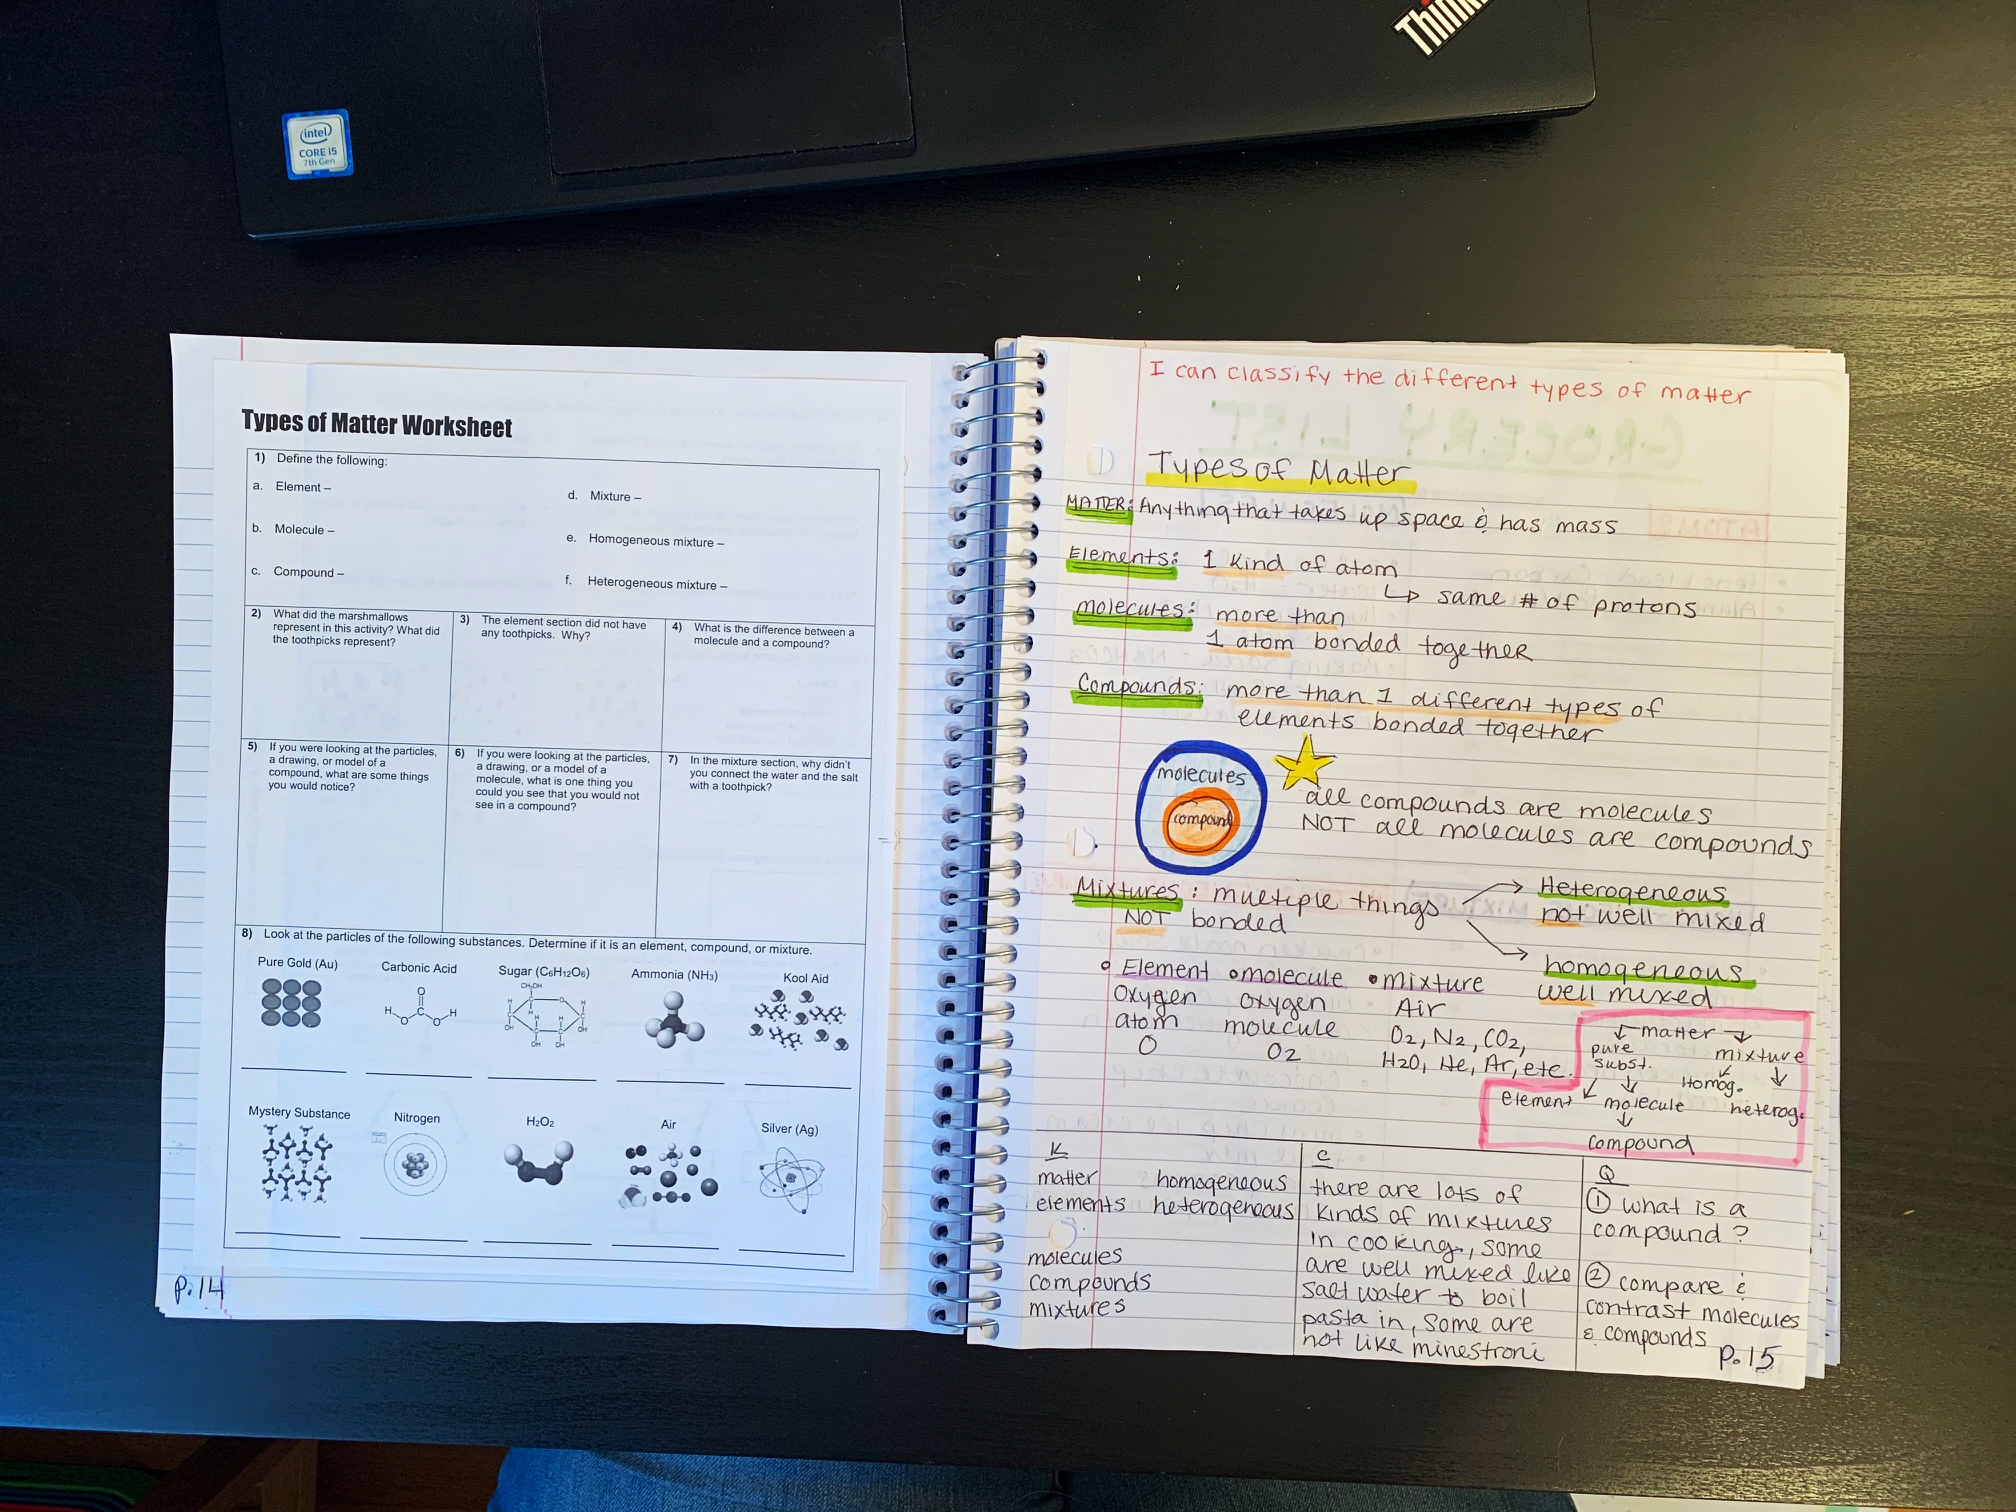 Think
intel
CORE i5
7th Gen
Types of Matter Worksheet
1) Define the following:
a. Element –
b. Molecule –
c. Compound –
d. Mixture –
e. Homogeneous mixture –
f. Heterogeneous mixture –
2) What did the marshmallows
represent in this activity? What did
the toothpicks represent?
3) The element section did not have
any toothpicks. Why?
4) What is the difference between a
molecule and a compound?
5) If you were looking at the particles,
a drawing, or model of a
compound, what are some things
you would notice?
6) If you were looking at the particles,
a drawing, or a model of a
molecule, what is one thing you
could you see that you would not
see in a compound?
7) In the mixture section, why didn't
you connect the water and the salt
with a toothpick?
8) Look at the particles of the following substances. Determine if it is an element, compound, or mixture.
Pure Gold (Au)
Carbonic Acid
O
H O C O H
Sugar (C6H12O6)
CH2OH
Ammonia (NH3)
Kool Aid
Mystery Substance
Nitrogen
H2O2
Air
Silver (Ag)
P.14
I can classify the different types of matter
Types of Matter
MATTER: Anything that takes up space & has mass
Elements: 1 kind of atom
↳ same # of protons
molecules: more than
1 atom bonded together
Compounds: more than 1 different types of
elements bonded together
molecules
compound
all compounds are molecules
NOT all molecules are compounds
Mixtures: multiple things
NOT bonded
Heterogeneous
not well mixed
homogeneous
well mixed
• Element • molecule • mixture
Oxygen oxygen Air
atom molecule O2, N2, CO2,
O O2 H2O, He, Ar, etc.
matter
pure
subst.
mixture
Homog.
heterog.
element
molecule
compound
K
matter homogeneous
elements heterogeneous
molecules
compounds
mixtures
C
there are lots of
kinds of mixtures
in cooking, some
are well mixed like
salt water to boil
pasta in, some are
not like minestroni
Q
① what is a
compound?
② compare &
contrast molecules
& compounds
p.15